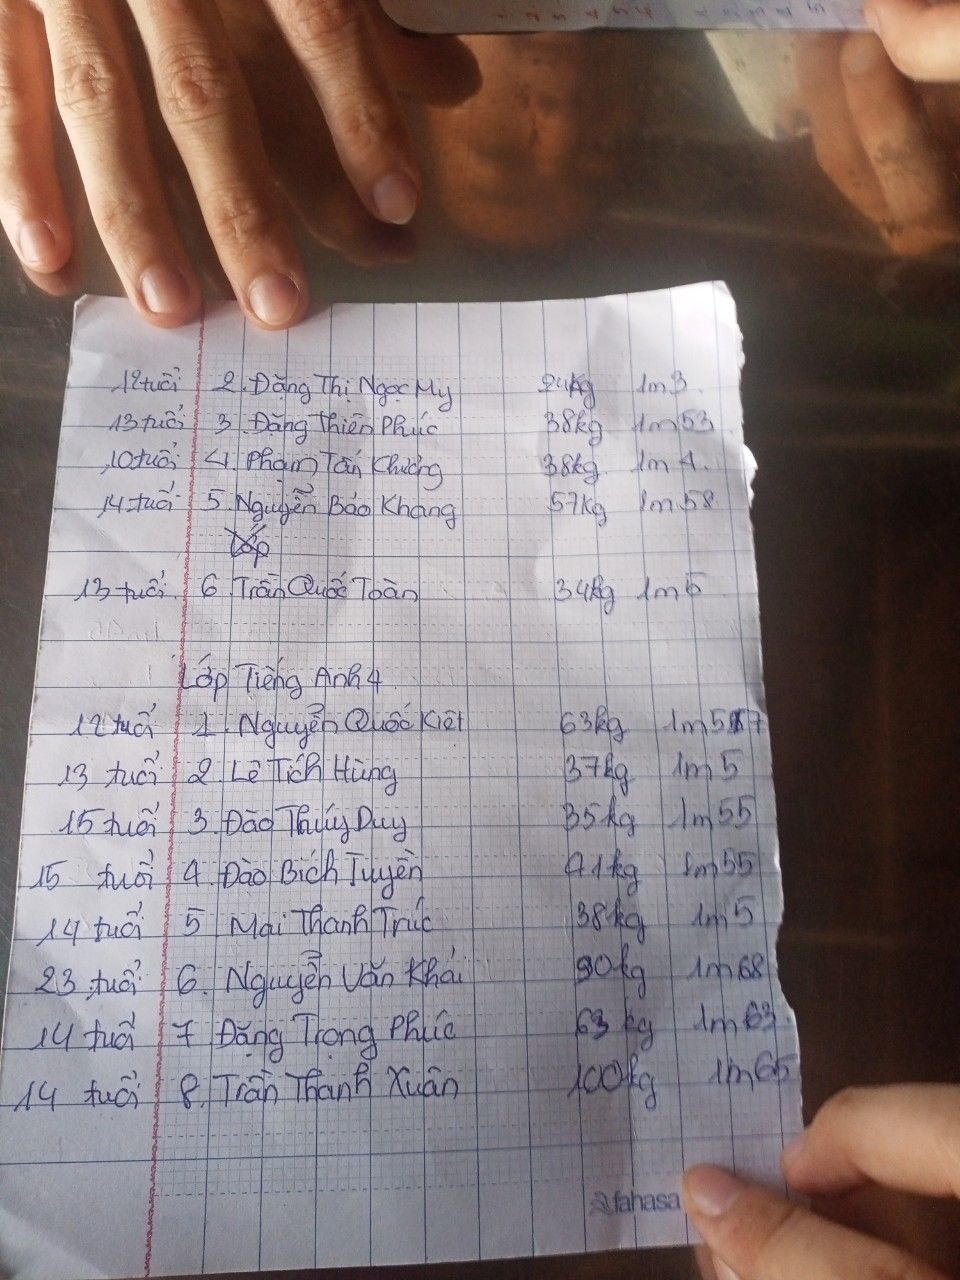 12 tuổi 2. Đặng Thị Ngọc My 24kg 1m3.
13 tuổi 3. Đặng Thiên Phúc 38kg 1m53
10 tuổi 4. Phạm Tấn Khương 38kg 1m4.
14 tuổi 5. Nguyễn Bảo Khang 57kg 1m58
Lớp
13 tuổi 6. Trần Quốc Toàn 34kg 1m5
Lớp Tiếng Anh 4
12 tuổi 1. Nguyễn Quốc Kiệt 63kg 1m57
13 tuổi 2 Lê Tích Hùng 37kg 1m5
15 tuổi 3. Đào Thúy Duy 35kg 1m55
15 tuổi 4. Đào Bích Tuyền 41kg 1m55
14 tuổi 5 Mai Thanh Trúc 38kg 1m5
23 tuổi 6. Nguyễn Văn Khải 90kg 1m68
14 tuổi 7 Đặng Trọng Phúc 63kg 1m63.
14 tuổi 8. Trần Thanh Xuân 100kg 1m65
fahasa